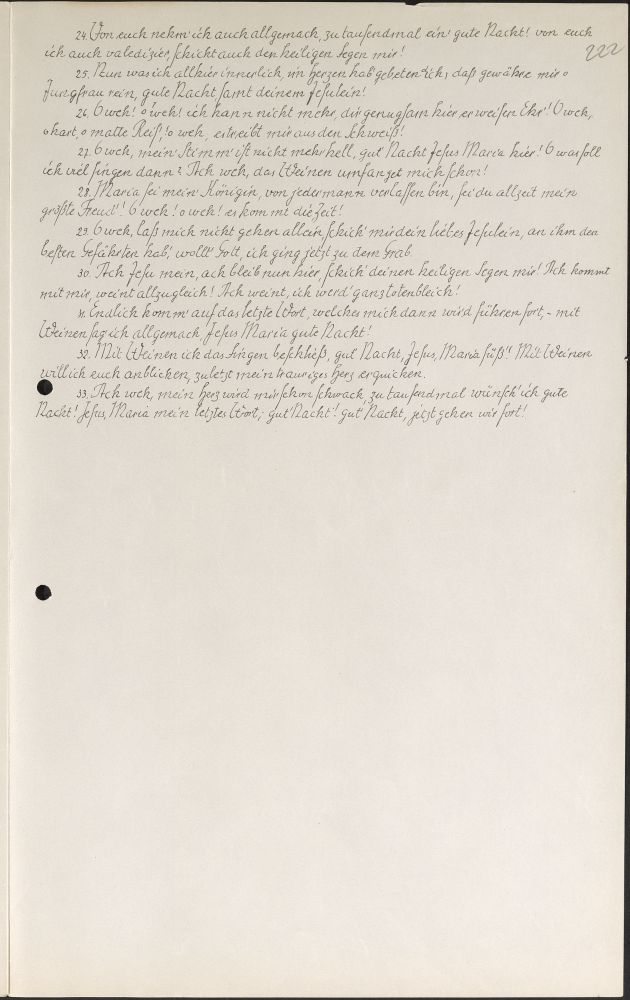 222
24. Von euch nehm' ich auch allgemach, zu tausendmal ein' gute Nacht! von euch
ich auch valedizier, schickt auch den heiligen Segen mir!
25. Nun was ich allhier innerlich, im Herzen hab' gebeten dich, daß gewähre mir o
Jungfrau rein, gute Nacht samt deinem Jesulein!
26. O weh! o weh! ich kann nicht mehr, dir genugsam hier erweisen Ehr'! O weh,
o hart, o matte Reis'! o weh, es treibt mir aus den Schweiß!
27. O weh, mein Stimm' ist nicht mehr hell, gut' Nacht Jesus Maria hier! O was soll
ich viel singen dann? Ach weh, das Weinen umfanget mich schon!
28. Maria sei mein' Königin, von jedermann verlassen bin, sei du allzeit mein
größte Freud'! O weh! o weh! es kommt die Zeit!
29. O weh, laß mich nicht gehen allein, schick' mir dein liebes Jesulein, an ihm den
besten Gefährten hab', wollt' Gott, ich ging jetzt zu dem Grab.
30. Ach Jesu mein, ach bleib nun hier, schick' deinen heiligen Segen mir! Ach kommt
mit mir, weint allzugleich! Ach weint, ich werd' ganz totenbleich!
31. Endlich komm' auf das letzte Wort, welches mich dann wird führen fort, - mit
Weinen sag ich allgemach, Jesus Maria gute Nacht!
32. Mit Weinen ich das Singen beschließ, gut' Nacht, Jesus, Maria süß'! Mit Weinen
will ich euch anblicken, zuletzt mein trauriges Herz erquicken.
33. Ach weh, mein Herz wird mir schon schwach, zu tausendmal wünsch' ich gute
Nacht! Jesus, Maria mein letztes Wort; gut' Nacht! gut' Nacht, jetzt gehen wir fort!